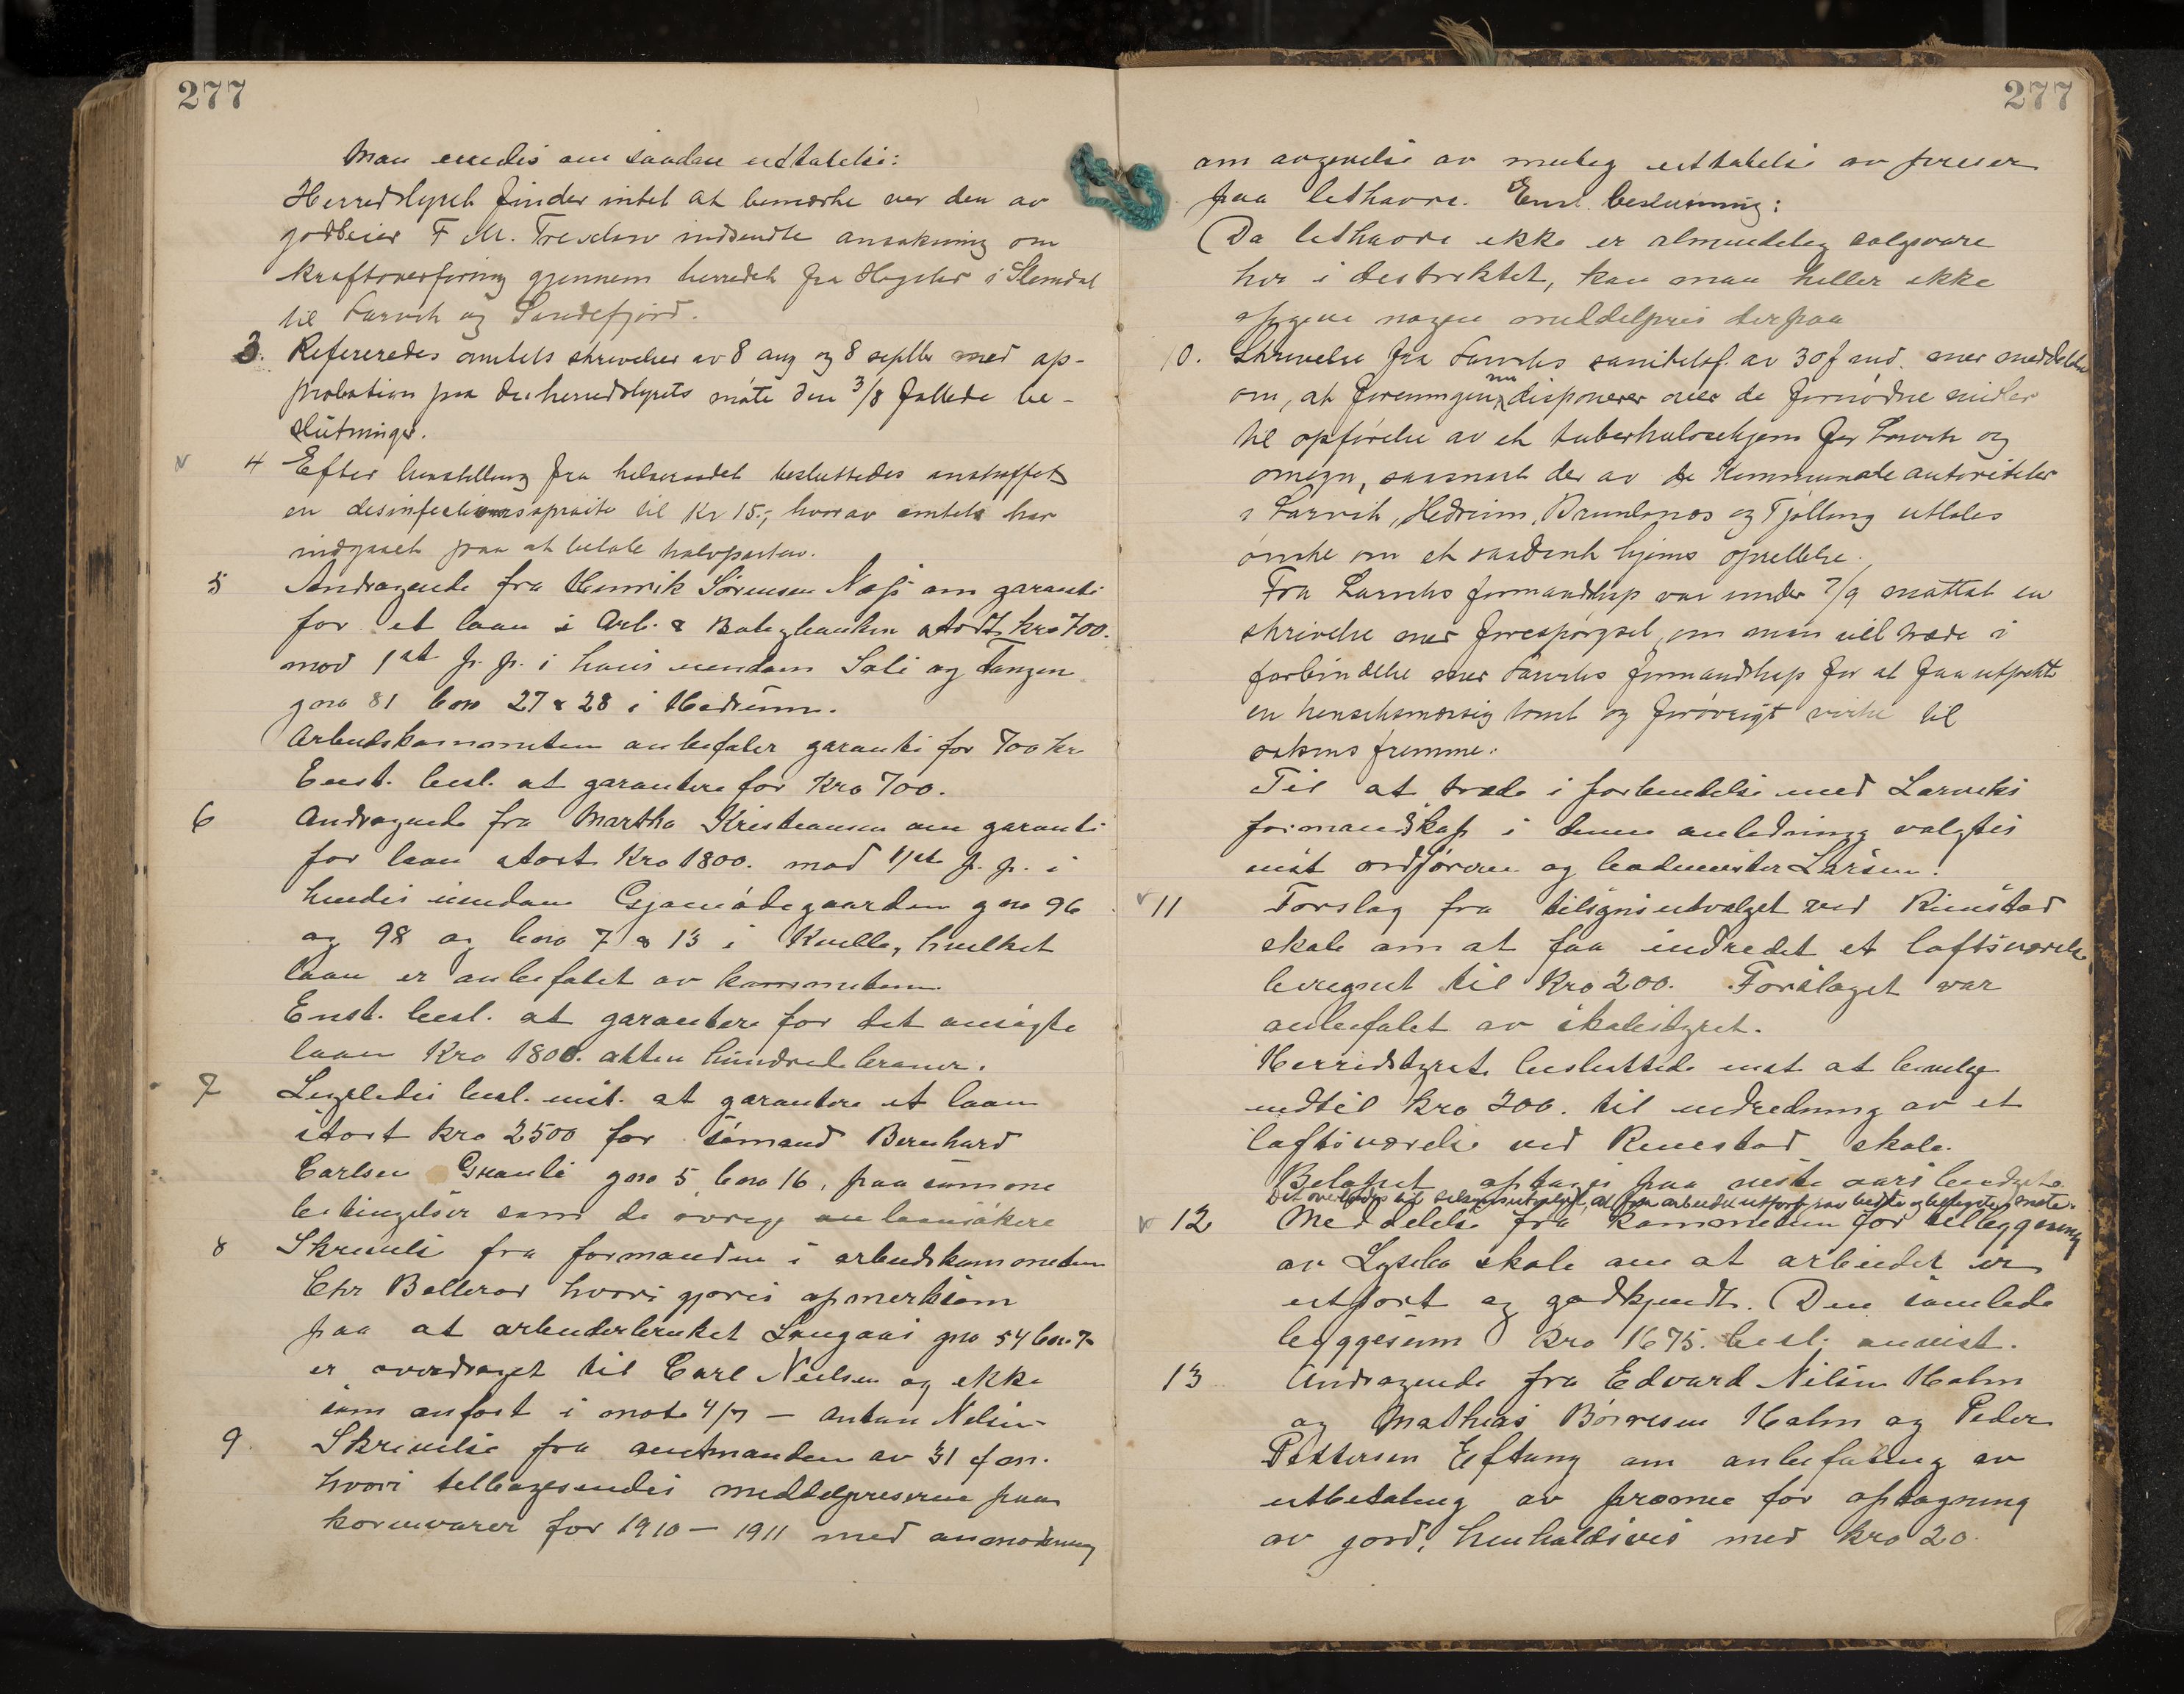 277
Man enedes om saadan udtalelse:
Herredstyret finder intet at bemerke ver den av
godseier F M. Treschow indsendte ansøkning om
kraftoverføring gjennem herredet fra Hogstvet i Slemdal
til Larvik og Sandefjord.
3. Refereredes amtets skrivelser av 8 aug og 8 septbr med ap-
probation paa de i herredstyrets møte den 3/8 fattede be-
slutninger.
4 Efter henstilling fra helseraadet besluttedes anskaffet
en desinfectionssprøite til Kr 15.-, hvorav amtet har
indgaaet paa at betale halvparten.
5 Andragende fra Henrik Sørensen Næss om garanti
for et laan i Arb. & Boligbanken stort kro 700.
mod 1ste p. p. i hans eiendom Soli og Tangen
gno 81 bno 27 & 28 i Hedrum.
Arbeidskommiteen anbefaler garanti for 700 kr
Enst. besl. at garantere for Kro 700.
6 Andragende fra Martha Kristiansen om garanti
for laan stort Kro 1800. mod 1ste p. p. i
hendes eiendom Gjømødegaarden gno 96
og 98 og bno 7 & 13 i Kvelle, hvilket
laan er anbefalet av kommiteen.
Enst. besl. at garantere for det ansøgte
laan Kro 1800. atten hundrede kroner.
7 Ligeledes besl. enst. at garantere et laan
stort kro 2500 for sømand Bernhard
Carlsen Granli gno 5 bno 16, paa samme
betingelser som de øvrige laansøkere
8 Skrivelse fra formanden i arbeidskommiteen
Chr Bollerød hvori gjøres opmerksom
paa at arbeiderbruket Langaas gno 54 bno 7
er overdraget til Carl Nielsen og ikke
som anført i møte 4/7 — Anton Nilsen
9. Skrivelse fra amtmanden av 31 f. m.
hvori tilbagesendes middelpriserne paa
kornvarer for 1910 – 1911 med anmodning
277
om avgivelse av mulig uttalelse av priser
paa lethavre. Enst. beslutning:
Da lethavre ikke er almindelig salgsvare
her i destriktet, kan man heller ikke
opgive nogen middelpris derpaa
10. Skrivelse fra Larviks sanitetsf. av 30 f md. mer meddelelse
om, at foreningen nu disponerer over de fornødne midler
til opførelse av et tuberkulosehjem for Larvik og
omegn, saasnart der av de kommunale autoriteter
i Larvik, Hedrum, Brunlanæs og Tjølling uttales
ønske om et saadant hjems oprettelse.
Fra Larviks formandskap var under 7/9 mottat en
skrivelse mer forespørgsel, om man vil træde i
forbindelse mer Larviks formandskap for at faa utpekt
en hensiktsmæssig tomt og forøvrigt virke til
sakens fremme.
Til at træde i forbindelse med Larviks
formandskap i denne anledning valgtes
enst ordføreren og bademester Larsen.
11 Forslag fra tilsynsutvalget ved Rimstad
skole om at faa indredet et loftsværelse
beregnet til Kro 200. Forslaget var
anbefalet av skolestyret.
Herredstyret besluttede enst at bevilge
indtil kro 200. til indredning av et
loftsværelse ved Rimstad skole.
Beløpet optages paa neste aars budget.
Det overlodes til tilsynsutvalget, at faa arbeidet utført paa bedste og billigste maate.
12 Meddelelse fra kommiteen for tilbygning
av Lysebo skole om at arbeidet er
utført og godkjendt. Den samlede
byggesum Kro 1675. besl. anvist.
13 Andragende fra Edvard Nilsen Holm
og Mathias Børresen Holm og Peder
Pettersen Eftang om anbefaling av
utbetaling av præmie for optagning
av jord, henholdsvis med kro 20